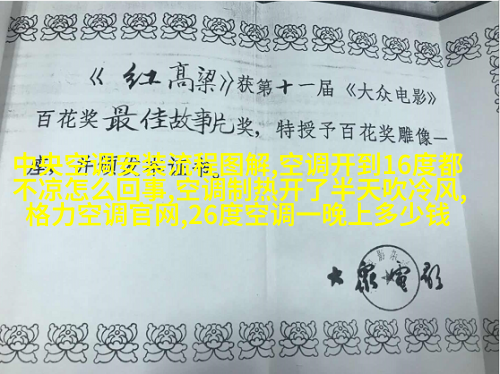 《红高粱》获第十一届《大众电影》
百花奖最佳故事片奖，特授予百花奖雕像一
座，并颁发证书。
中央空调安装流程图解,空调开到16度都
不凉怎么回事,空调制热开了半天吹冷风,
格力空调官网,26度空调一晚上多少钱
大眾電影